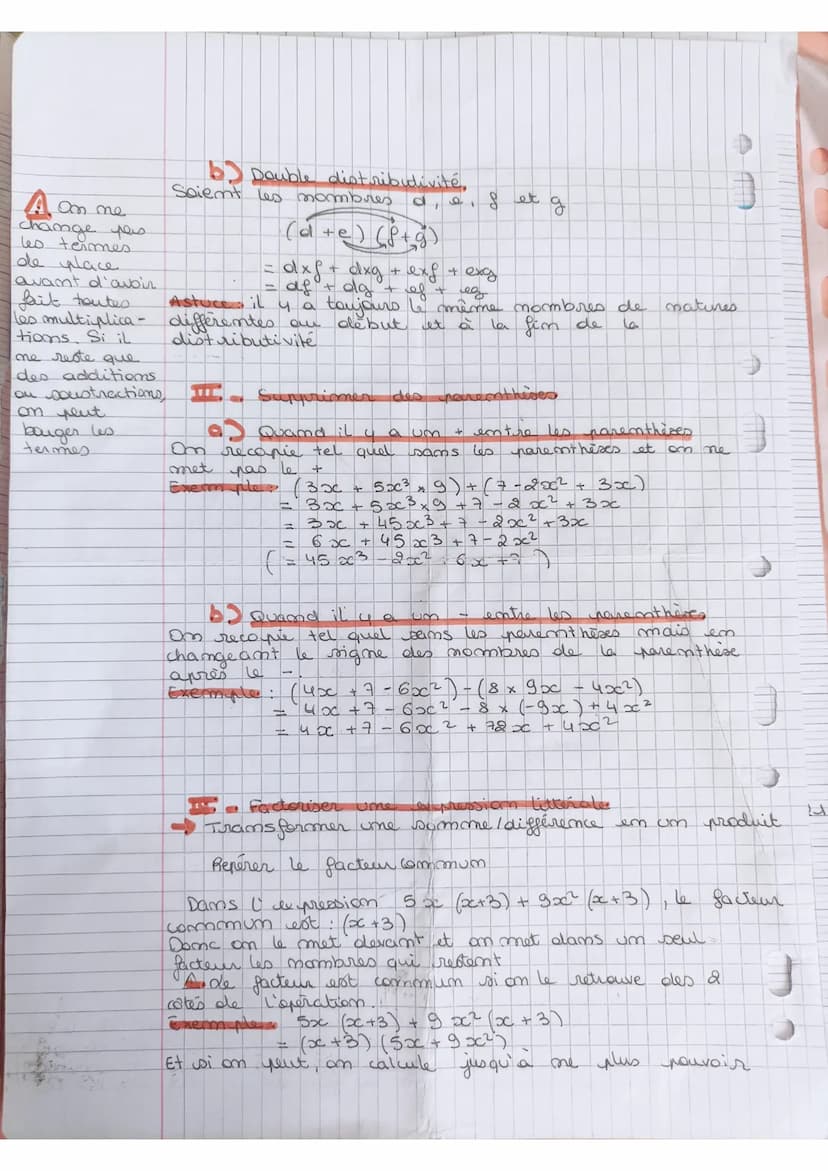 b.) Double distributivité.
Soient les nombres d, e, f et g
(d + e) (f + g)
= dxf + dxg + exf + exg
= df + dg + ef + eg
Astuce : il y a toujours le même nombres de natures
différentes au début et à la fin de la
distributivité
⚠ On ne
change pas
les termes
de place
avant d'avoir
fait toutes
les multiplica-
tions. Si il
ne reste que
des additions
ou soustractions,
on peut
bouger les
termes
III. - Supprimer des parenthèses
a.) Quand il y a un + entre les parenthèses
On recopie tel quel sans les parenthèses et on ne
met pas le +
Exemple : (3x + 5x³ x 9) + (7 - 2x² + 3x)
= 3x + 5x³ x 9 + 7 - 2x² + 3x
= 3x + 45x³ + 7 - 2x² + 3x
= 6x + 45x³ + 7 - 2x²
( = 45x³ - 2x² 6x + 7 )
b.) Quand il y a un - entre les parenthèses
On recopie tel quel sans les parenthèses mais en
changeant le signe des nombres de la parenthèse
après le -.
Exemple : (4x + 7 - 6x²) - (8 x 9x - 4x²)
= 4x + 7 - 6x² - 8 x (-9x) + 4x²
= 4x + 7 - 6x² + 72x + 4x²
III - Factoriser une expression littérale
→ Transformer une somme/différence en un produit
Repérer le facteur commum
Dans l'expression 5x (x+3) + 9x² (x+3), le facteur
commum est : (x+3)
Donc on le met devant et on met dans un seul
facteur les nombres qui restent
⚠ Le facteur est commum si on le retrouve des 2
côtés de l'opération.
Exemple : 5x (x+3) + 9x² (x+3)
= (x+3) (5x + 9x²)
Et si on peut, on calcule jusqu'à ne plus pouvoir